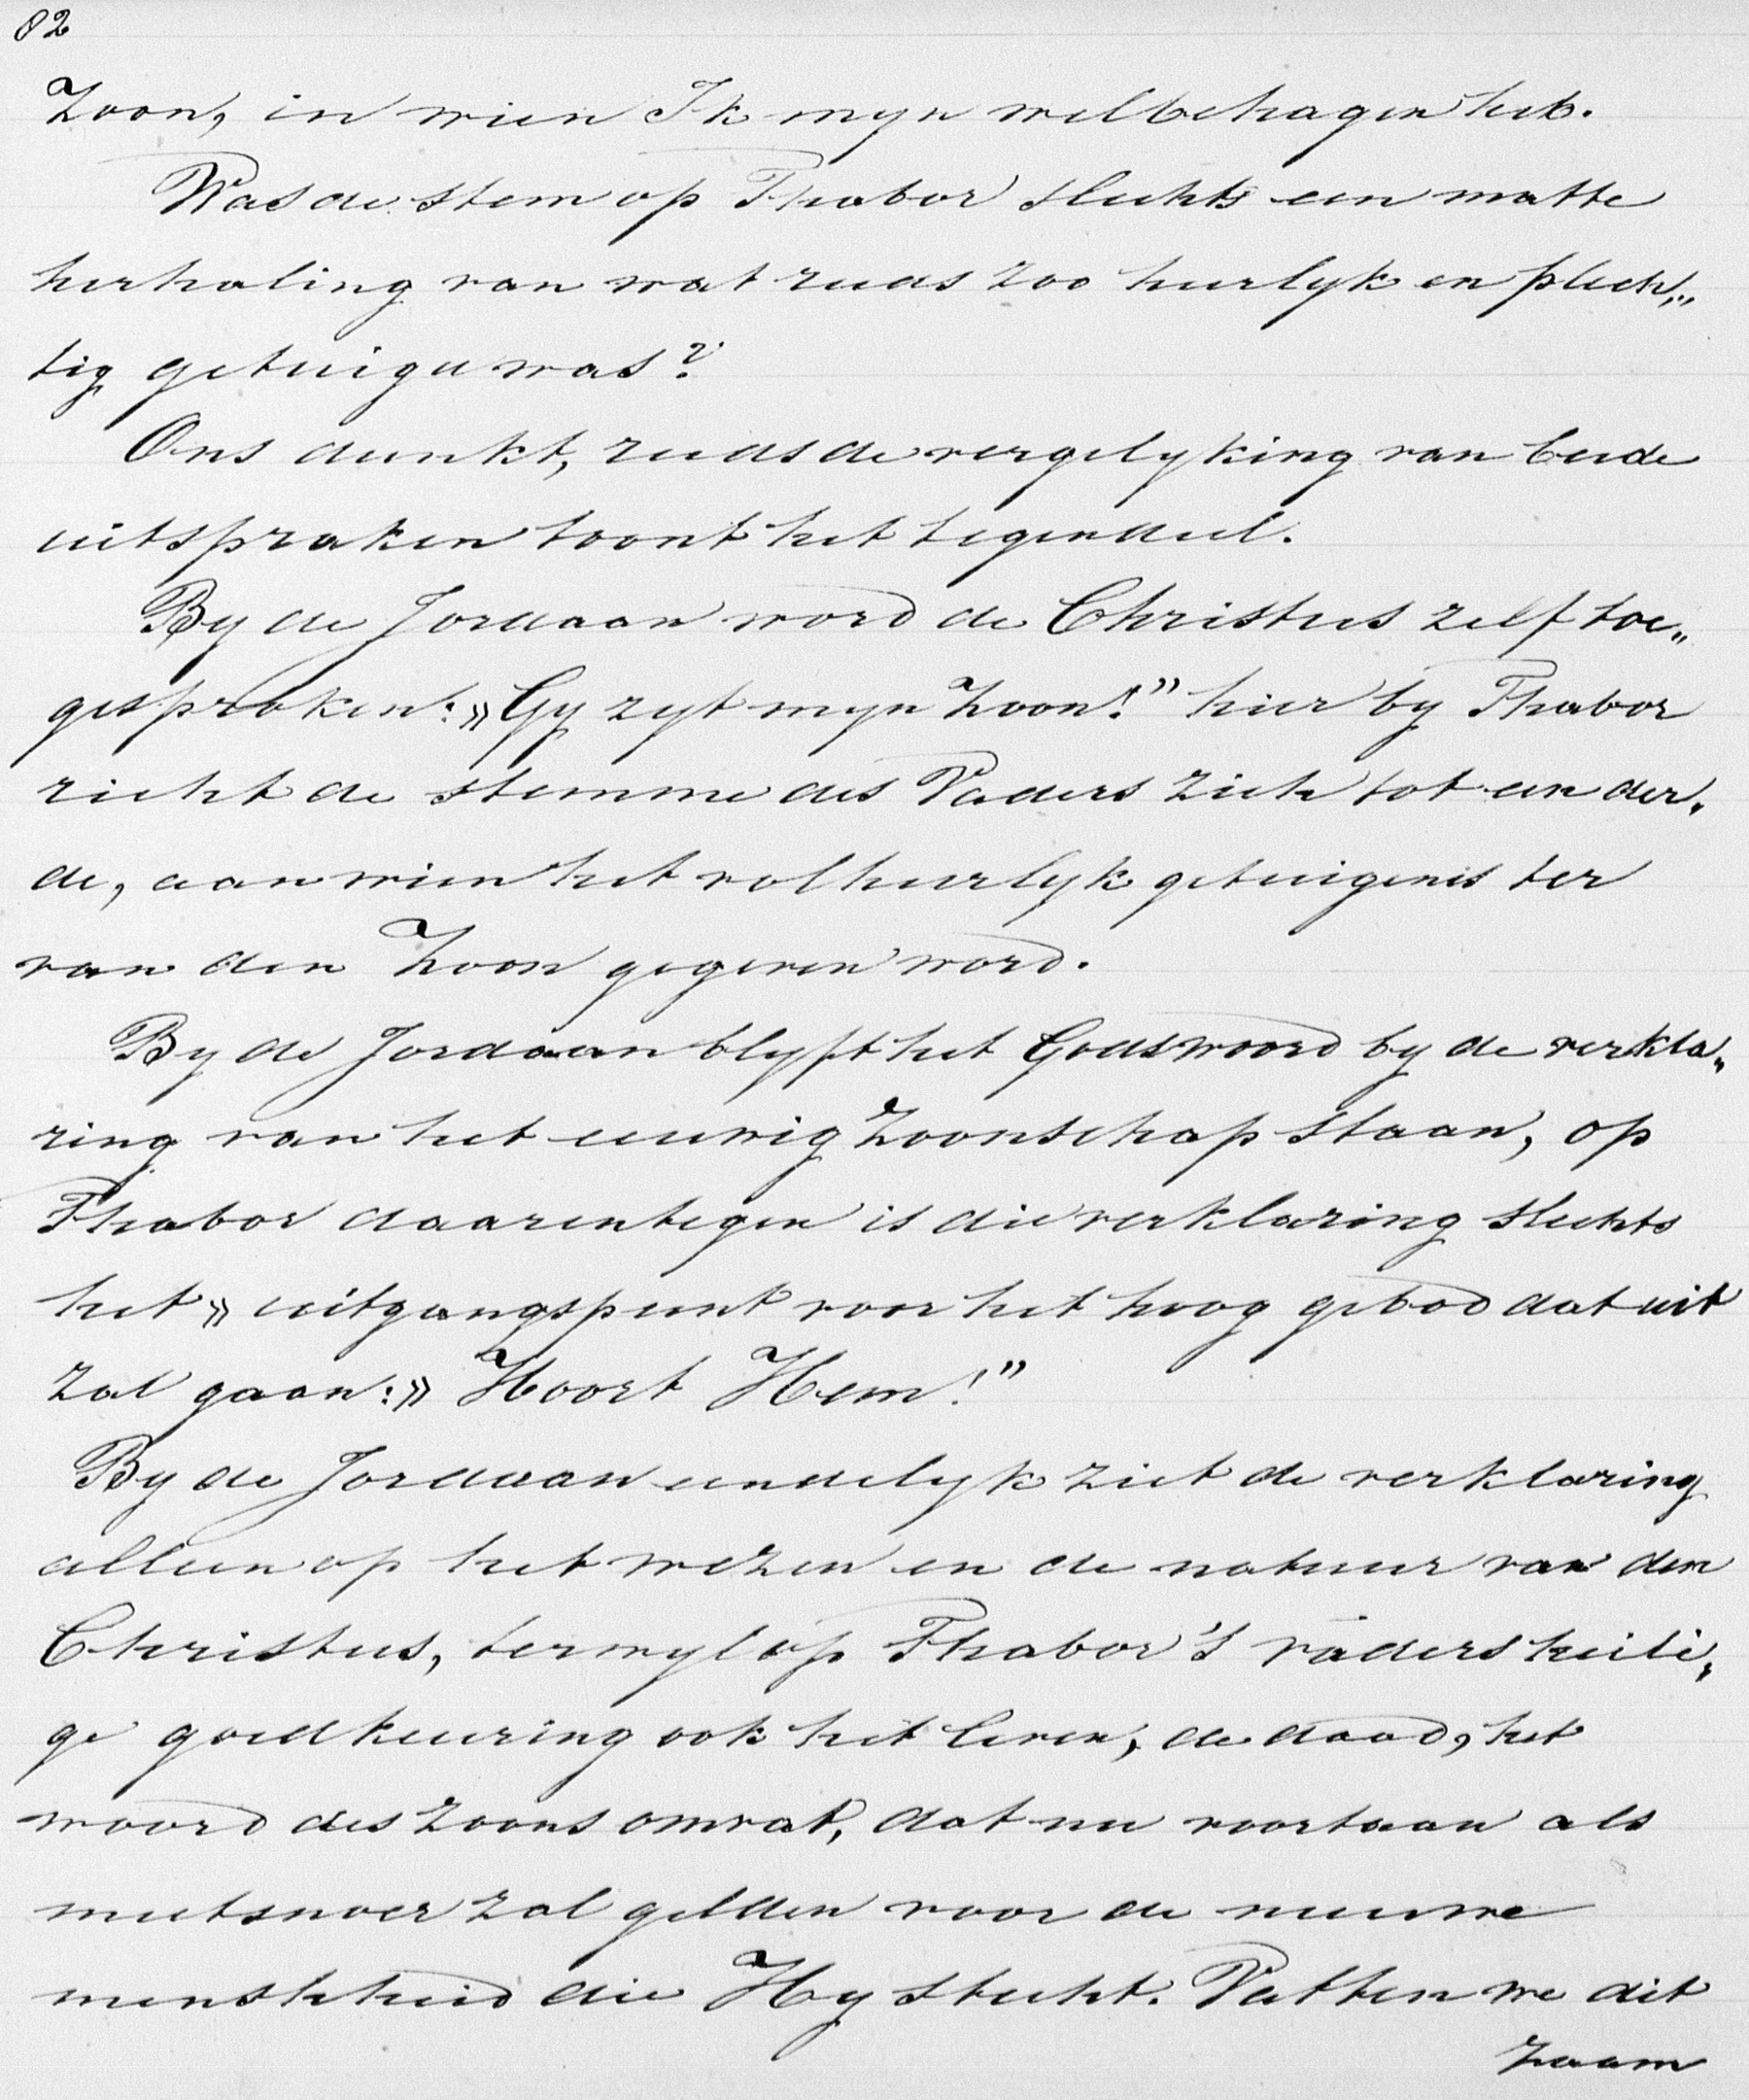 82
Zoon, in wien Ik myn welbehagen heb.
Was de stem op Thabor slechts een matte
herhaling van wat reeds zoo heerlyk en plech„
tig getuigd was?
Ons dunkt, reeds de vergelyking van beide
uitspraken toont het tegendeel.
By de Jordaan word de Christus zelf toe„
gesproken: „Gy zyt myn Zoon!” hier by Thabor
richt de stemme des Vaders zich tot een der„
de, aan wien het volheerlyk getuigenis ter
van den Zoon gegeven word.
By de Jordaan blyft het Godswoord by de verkla„
ring van het eeuwig Zoonschap staan, op
Thabor daarentegen is die verklaring slechts
het „ uitgangspunt voor het hoog gebod dat uit
zal gaan: „ Hoort Hem!”
By de Jordaan eindelyk ziet de verklaring
alleen op het wezen en de natuur van den
Christus, terwyl op Thabor's vaders heili„
ge goedkeuring ook het leven, de daad, het
woord des Zoons omvat, dat nu voortaan als
meetsnoer zal gelden voor de nieuwe
menschheid die Hy sticht. Vatten we dit
zaam